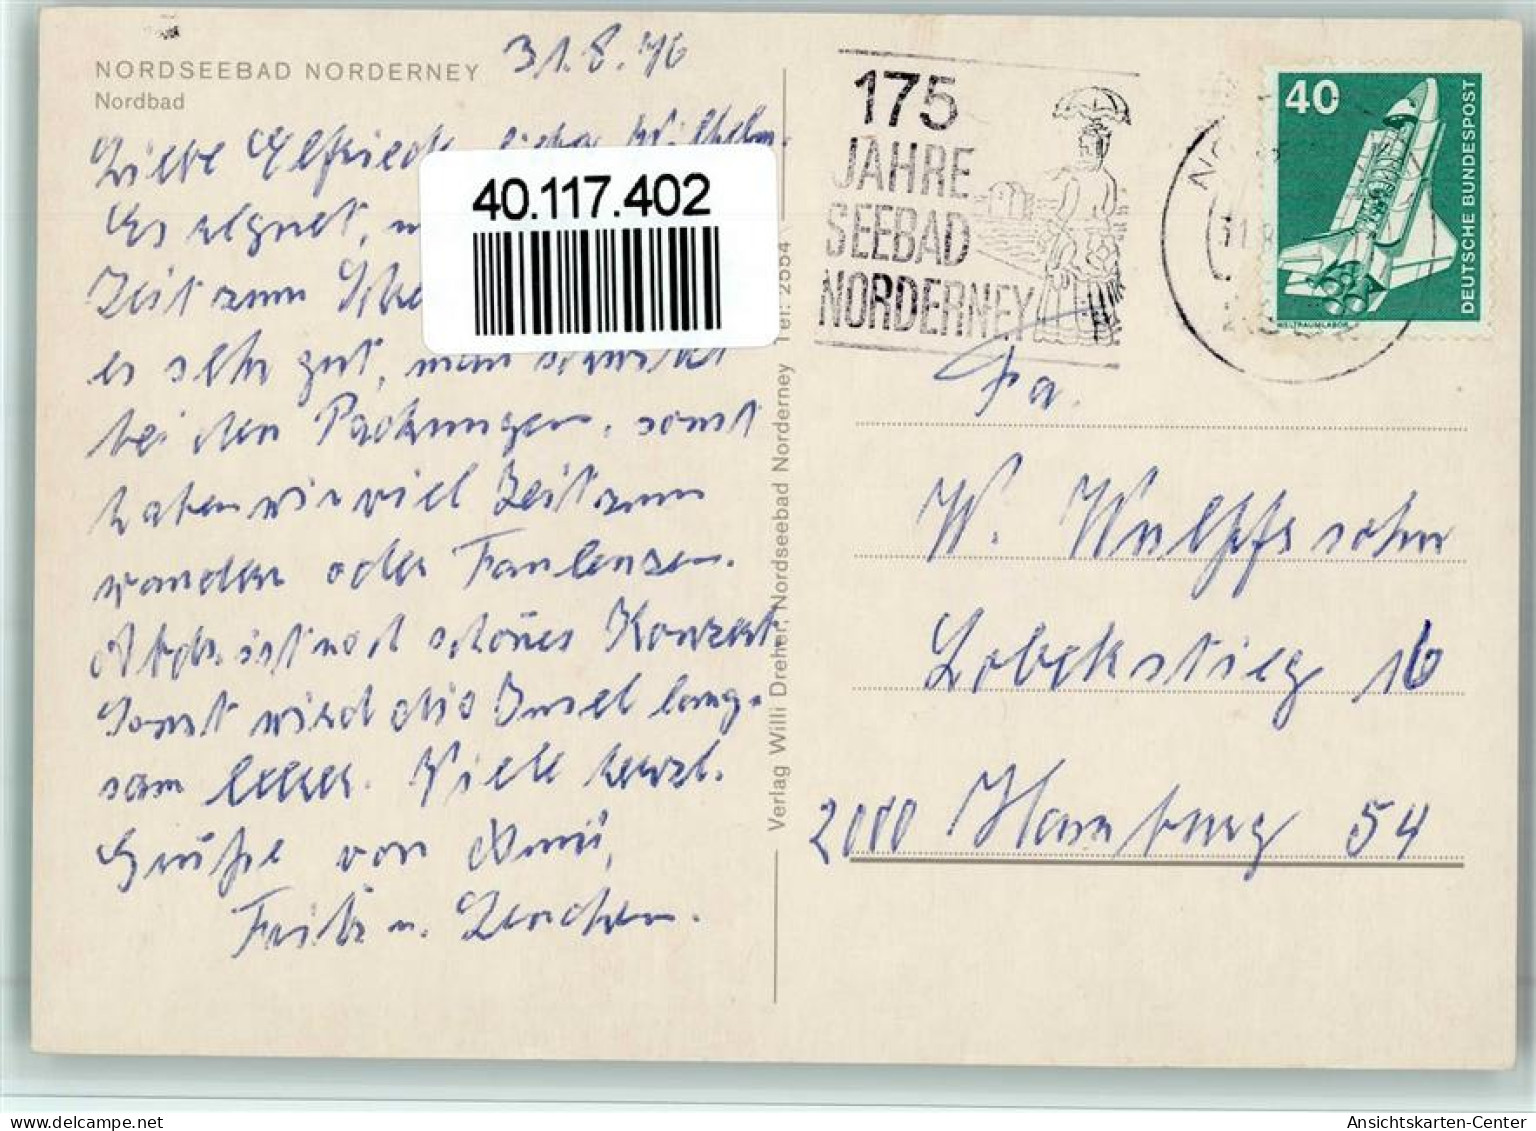 NORDSEEBAD NORDERNEY
Nordbad
31.8.76
Liebe Elfriede, lieber Wilhelm.
Es regnet,
Zeit zum
es sehr gut, man schwitzt
bei den Packungen, sonst
haben wir viel Zeit zum
wandern oder Faulenzen.
Abds. ist noch schönes Konzert.
Sonst wird die Insel lang-
sam leerer. Viele herzl.
Grüße von
Fritz u.
40.117.402
Verlag Willi Dreher, Nordseebad Norderney Tel. 2554
175
JAHRE
SEEBAD
NORDERNEY
40
DEUTSCHE BUNDESPOST
WELTRAUMLABOR
Fa.
W. Wulffsohn
Lobekstieg 16
2000 Hamburg 54
Ansichtskarten-Center